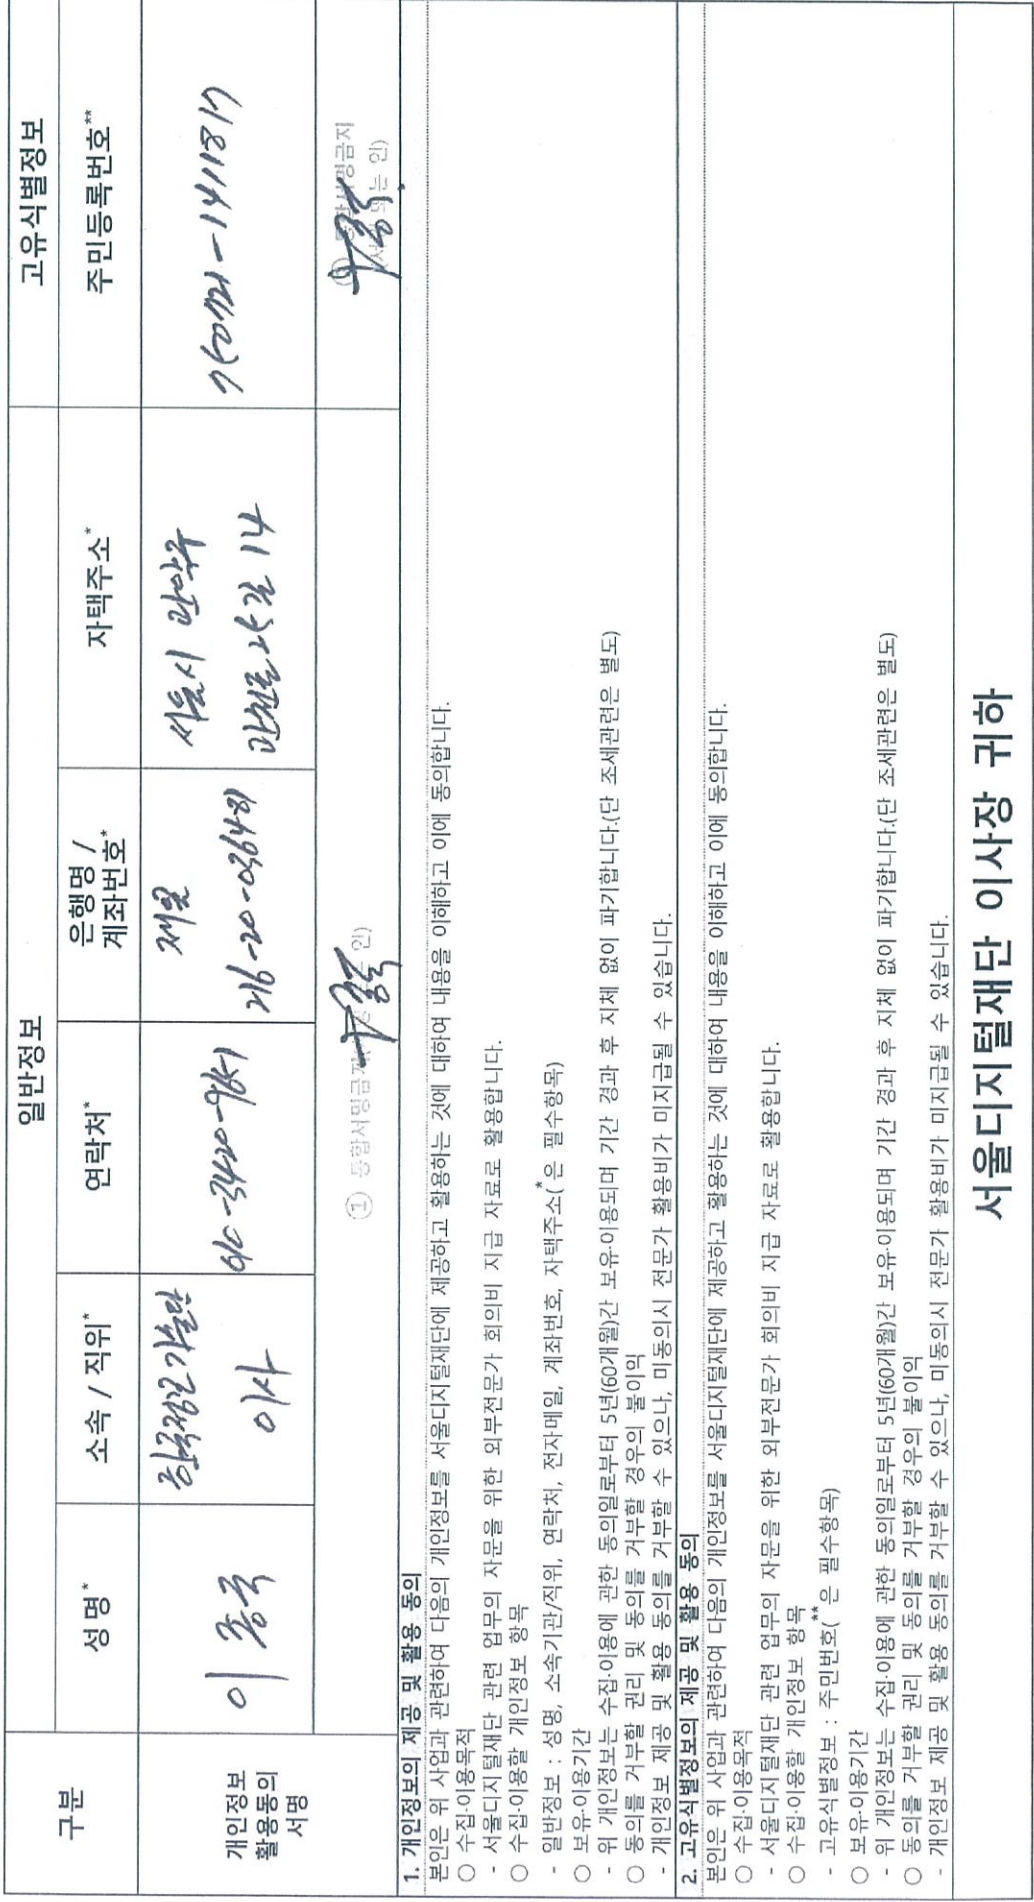 구분
일반정보
고유식별정보
성명*
소속 / 직위*
연락처*
은행명 /
계좌번호*
자택주소*
주민등록번호**
개인정보
활용동의
서명
이사
제일
216-20-036481
서울시 관악구
14
① 통합서명금지
1. 개인정보의 제공 및 활용 동의
본인은 위 사업과 관련하여 다음의 개인정보를 서울디지털재단에 제공하고 활용하는 것에 대하여 내용을 이해하고 이에 동의합니다.
○ 수집·이용목적
- 서울디지털재단 관련 업무의 자문을 위한 외부전문가 회의비 지급 자료로 활용합니다.
○ 수집·이용할 개인정보 항목
- 일반정보 : 성명, 소속기관/직위, 연락처, 전자메일, 계좌번호, 자택주소(*은 필수항목)
○ 보유·이용기간
- 위 개인정보는 수집·이용에 관한 동의일로부터 5년(60개월)간 보유·이용되며 기간 경과 후 지체 없이 파기합니다.(단 조세관련은 별도)
○ 동의를 거부할 권리 및 동의를 거부할 경우의 불이익
- 개인정보 제공 및 활용 동의를 거부할 수 있으나, 미동의시 전문가 활용비가 미지급될 수 있습니다.
2. 고유식별정보의 제공 및 활용 동의
본인은 위 사업과 관련하여 다음의 개인정보를 서울디지털재단에 제공하고 활용하는 것에 대하여 내용을 이해하고 이에 동의합니다.
○ 수집·이용목적
- 서울디지털재단 관련 업무의 자문을 위한 외부전문가 회의비 지급 자료로 활용합니다.
○ 수집·이용할 개인정보 항목
- 고유식별정보 : 주민번호(**은 필수항목)
○ 보유·이용기간
- 위 개인정보는 수집·이용에 관한 동의일로부터 5년(60개월)간 보유·이용되며 기간 경과 후 지체 없이 파기합니다.(단 조세관련은 별도)
○ 동의를 거부할 권리 및 동의를 거부할 경우의 불이익
- 개인정보 제공 및 활용 동의를 거부할 수 있으나, 미동의시 전문가 활용비가 미지급될 수 있습니다.
서울디지털재단 이사장 귀하